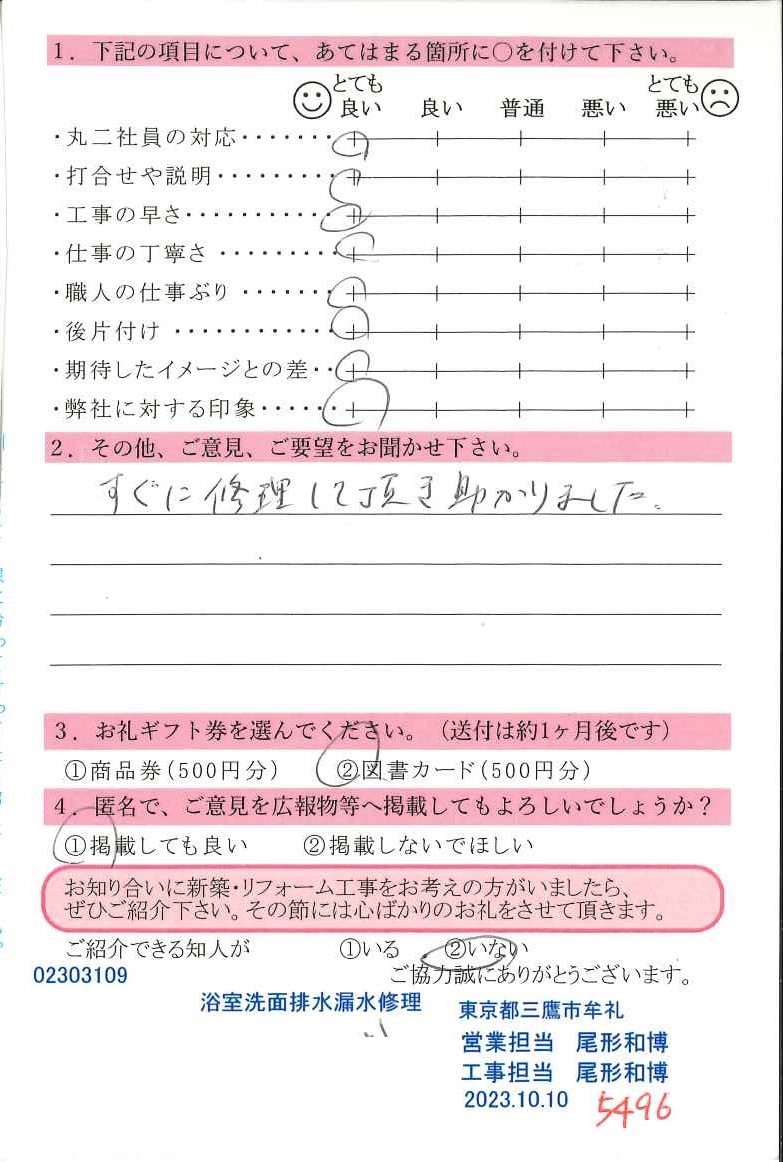 1. 下記の項目について、あてはまる箇所に○を付けて下さい。
とても良い 良い 普通 悪い とても悪い
・丸二社員の対応・・・・・・・
・打合せや説明・・・・・・・・・
・工事の早さ・・・・・・・・・・・
・仕事の丁寧さ・・・・・・・・・
・職人の仕事ぶり・・・・・・・
・後片付け・・・・・・・・・・・・
・期待したイメージとの差・・
・弊社に対する印象・・・・・・
2. その他、ご意見、ご要望をお聞かせ下さい。
すぐに修理して頂き助かりました。
3. お礼ギフト券を選んでください。(送付は約1ヶ月後です)
①商品券(500円分) ②図書カード(500円分)
4. 匿名で、ご意見を広報物等へ掲載してもよろしいでしょうか？
①掲載しても良い ②掲載しないでほしい
お知り合いに新築・リフォーム工事をお考えの方がいましたら、
ぜひご紹介下さい。その節には心ばかりのお礼をさせて頂きます。
ご紹介できる知人が ①いる ②いない
02303109 ご協力誠にありがとうございます。
浴室洗面排水漏水修理 東京都三鷹市牟礼
営業担当 尾形和博
工事担当 尾形和博
2023.10.10 5496